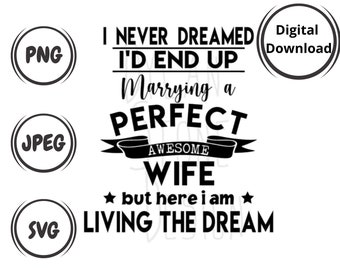 PNG
JPEG
SVG
I NEVER DREAMED
I'D END UP
Marrying a
PERFECT
AWESOME
WIFE
but here i am
LIVING THE DREAM
Digital
Download